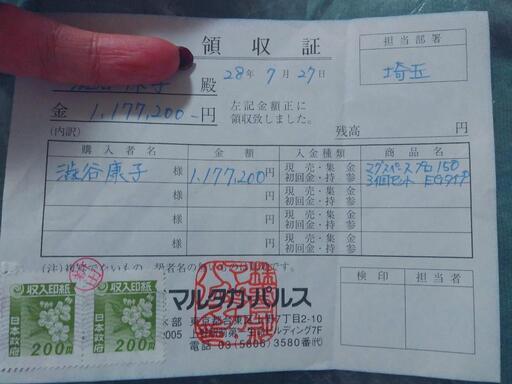 領収証
担当部署
殿
28年7月27日
埼玉
金 1,177,200-円
左記金額正に
領収致しました。
(内訳)
残高 円
購入者名 金額 入金種類 商品名
澁谷康子 様 1,177,200円 現売・集金 初回金・持参
3個セット EGタイプ
様 円 現売・集金 初回金・持参
様 円 現売・集金 初回金・持参
様 円 現売・集金 初回金・持参
検印 担当者
マルタカ・パルス
東京都台東区
7丁目2-10
ビルディング7F
電話 03(5806)3580番(代)
収入印紙
日本政府
200円
収入印紙
日本政府
200円